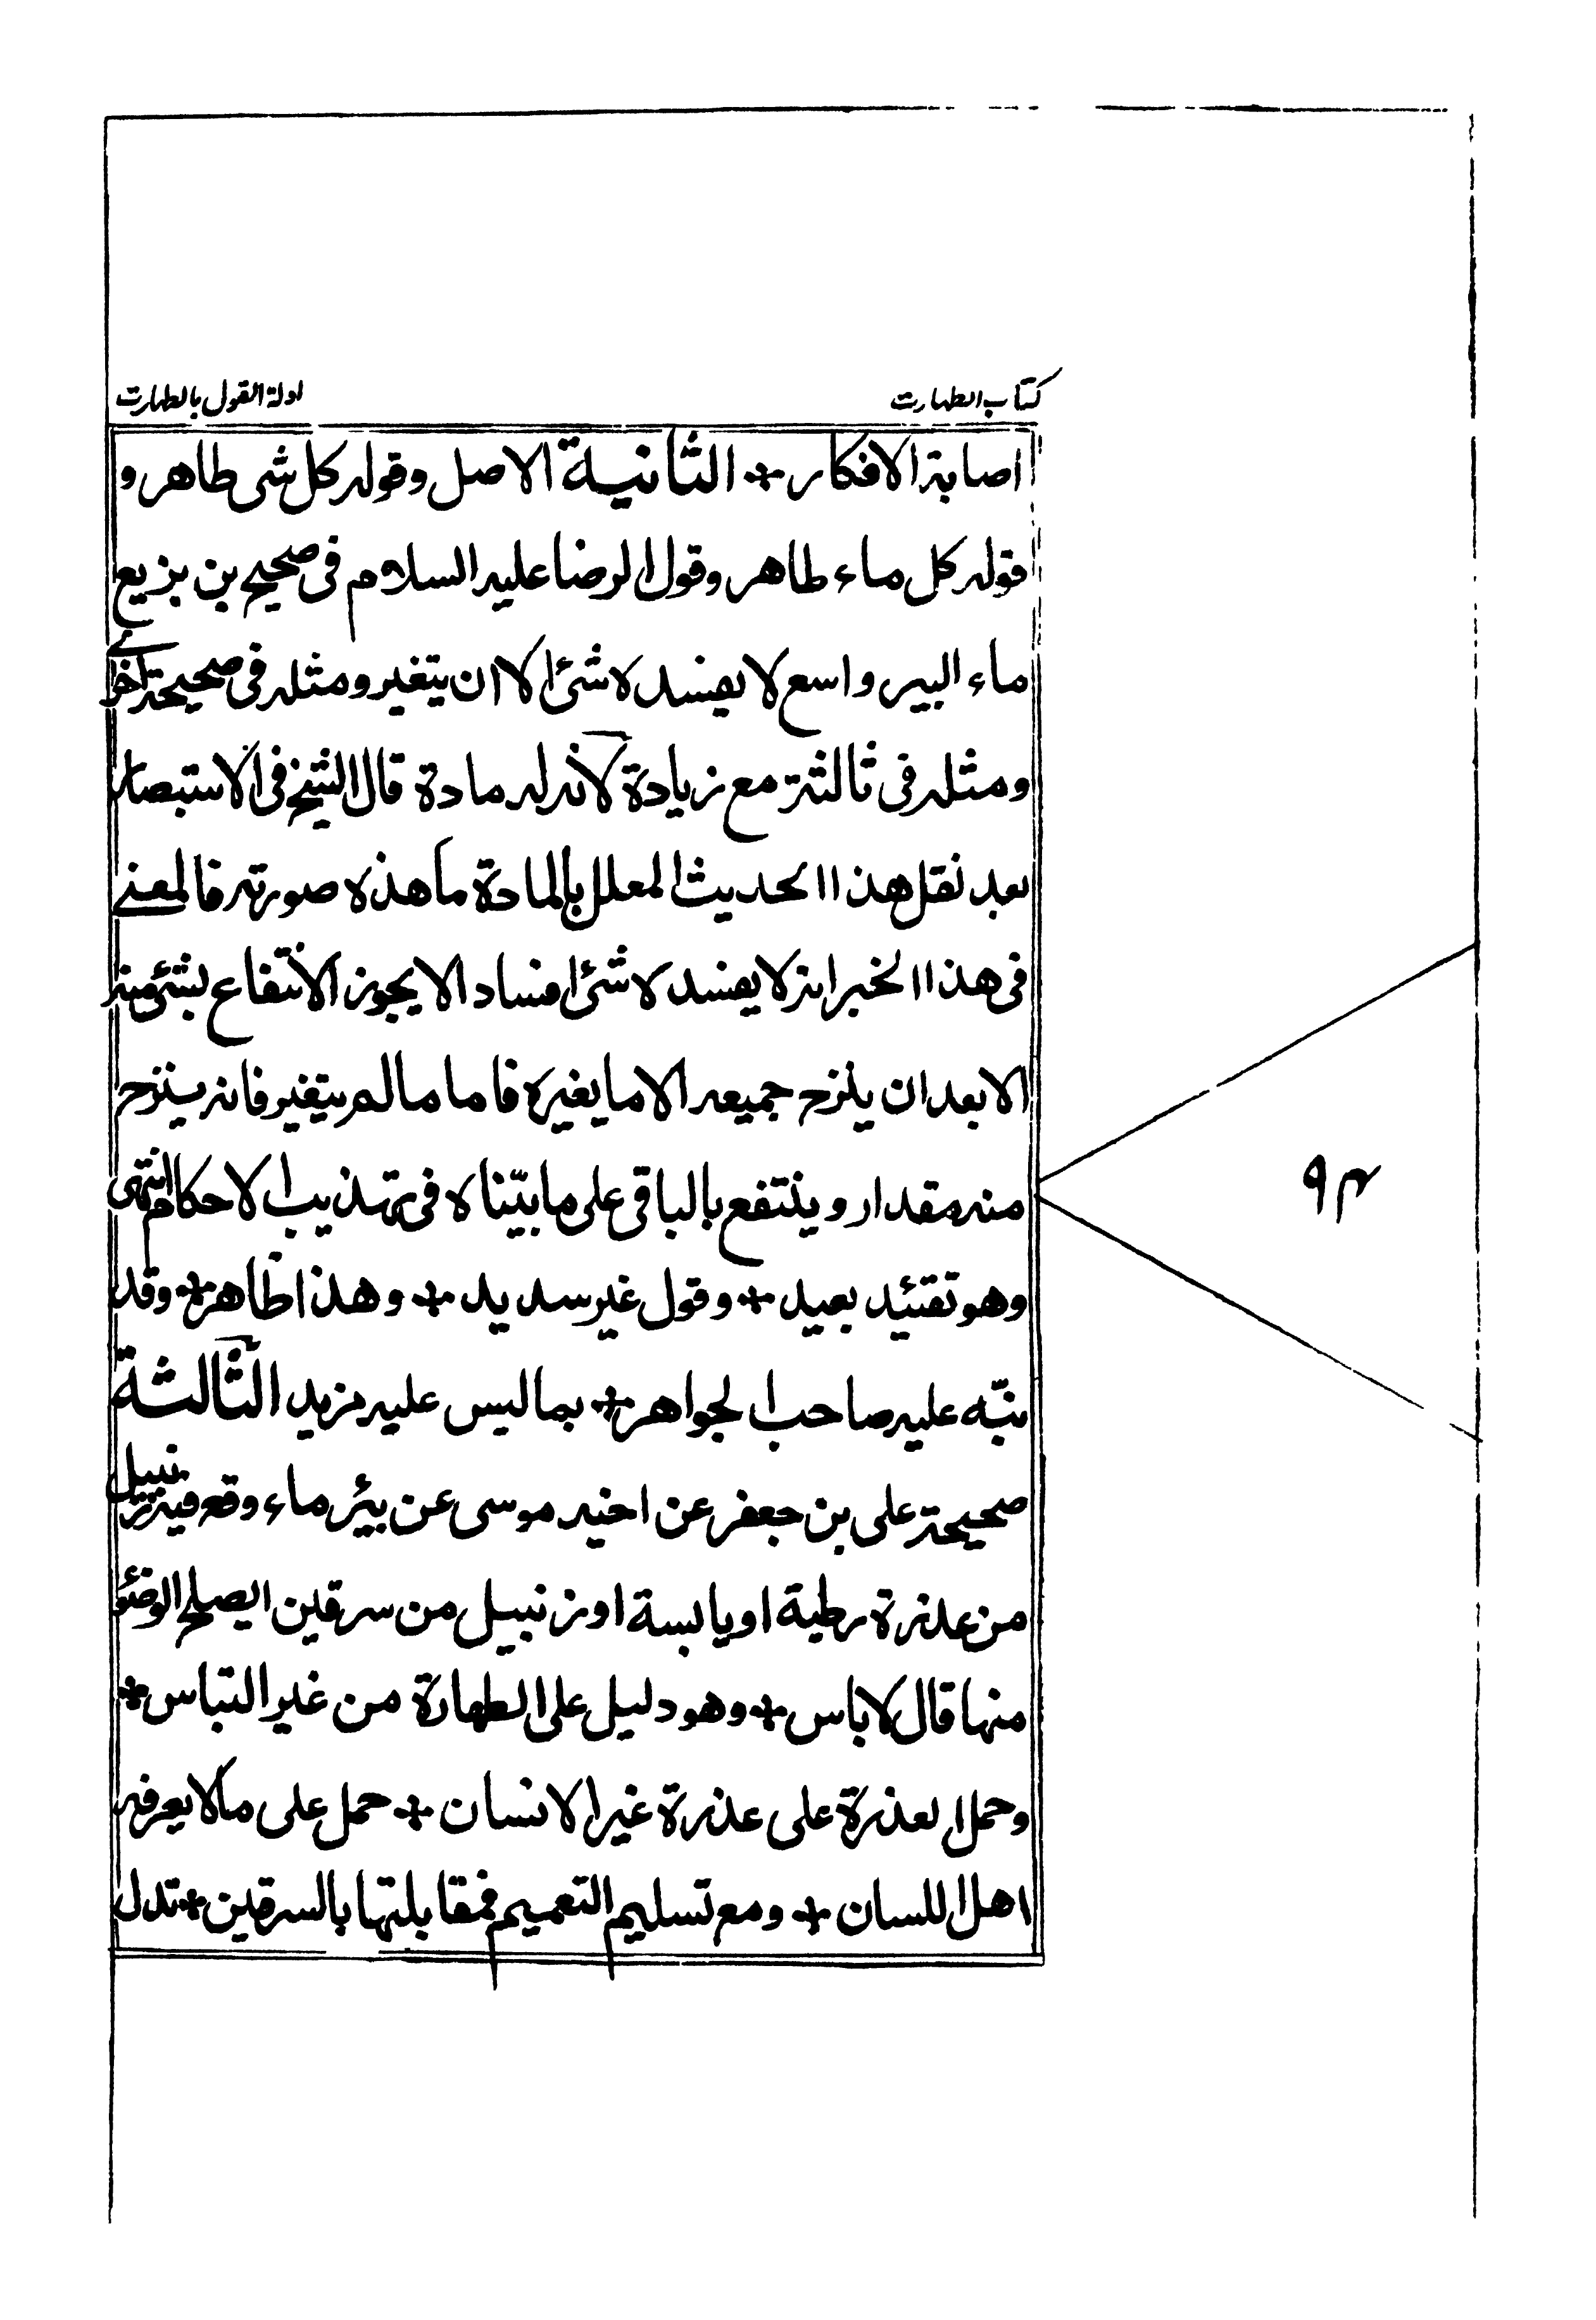 كتاب الطهارت
ادلة القول بالطهارت
اصابة الافكار * الثانية الاصل وقوله كل شى طاهر و
قوله كل ماء طاهر وقول الرضا عليه السلام فى صحيح بن بزيع
ماء البير واسع لا يفسده شئ الا ان يتغير ومثله فى صحيحة اخرے
ومثله فى ثالثة مع زيادة لأنه له مادة قال الشيخ فى الاستبصار
بعد نقل هذا الحديث المعلل بالمادة ما هذه صورته فالمعنے
فى هذا الخبر انه لا يفسده شئ افسادا لا يجوز الانتفاع بشئ منه
الا بعد ان ينزح جميعه الا ما يغيره فاما ما لم يتغير فانه ينزح
منه مقدار وينتفع بالباقى على ما بيّناه فى تهذيب الاحكام انتهى
وهو تقئيد بعيد * وقول غير سديد * وهذا ظاهر * وقد
نبّه عليه صاحب الجواهر * بما ليس عليه مزيد الثّالثة
صحيحة على بن جعفر عن اخيه موسى عن بئر ماء وقع فيه زنبيل
من عذرة رطبة او يابسة او زنبيل من سرقين ايصلح الوضؤ
منها قال لا باس * وهو دليل على الطهارة من غير التباس *
وحمل العذرة على عذرة غير الانسان * حمل على ما لا يعرفه
اهل اللسان * ومع تسليم التعميم فمقابلتها بالسرقين * تدل
۹۴